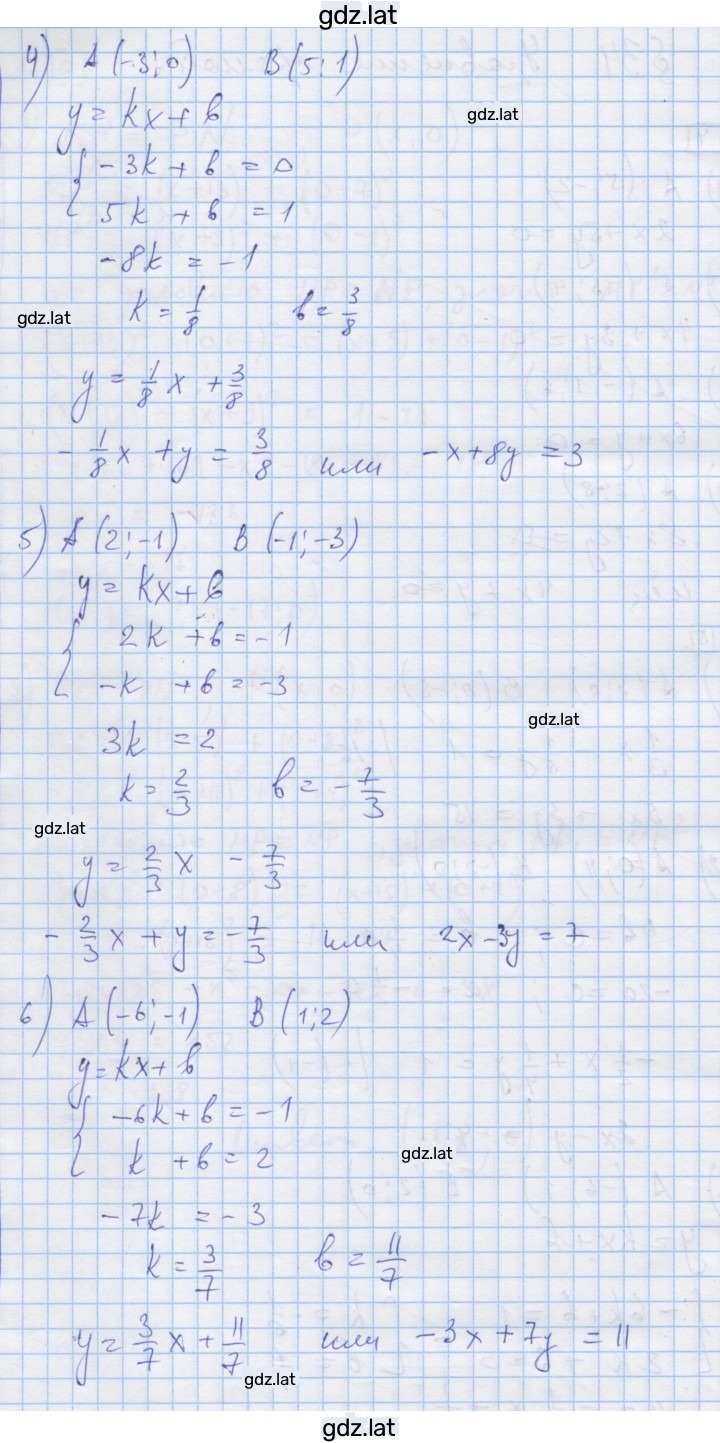 gdz.lat
4) A(-3; 0) B(5; 1)
y = kx + b
gdz.lat
{ -3k + b = 0
5k + b = 1
-8k = -1
k = 1/8 b = 3/8
gdz.lat
y = 1/8 x + 3/8
- 1/8 x + y = 3/8 или -x + 8y = 3
5) A(2; -1) B(-1; -3)
y = kx + b
{ 2k + b = -1
-k + b = -3
gdz.lat
3k = 2
k = 2/3 b = - 7/3
gdz.lat
y = 2/3 x - 7/3
- 2/3 x + y = - 7/3 или 2x - 3y = 7
6) A(-6; -1) B(1; 2)
y = kx + b
{ -6k + b = -1
k + b = 2
gdz.lat
-7k = -3
k = 3/7 b = 11/7
y = 3/7 x + 11/7 или -3x + 7y = 11
gdz.lat
gdz.lat